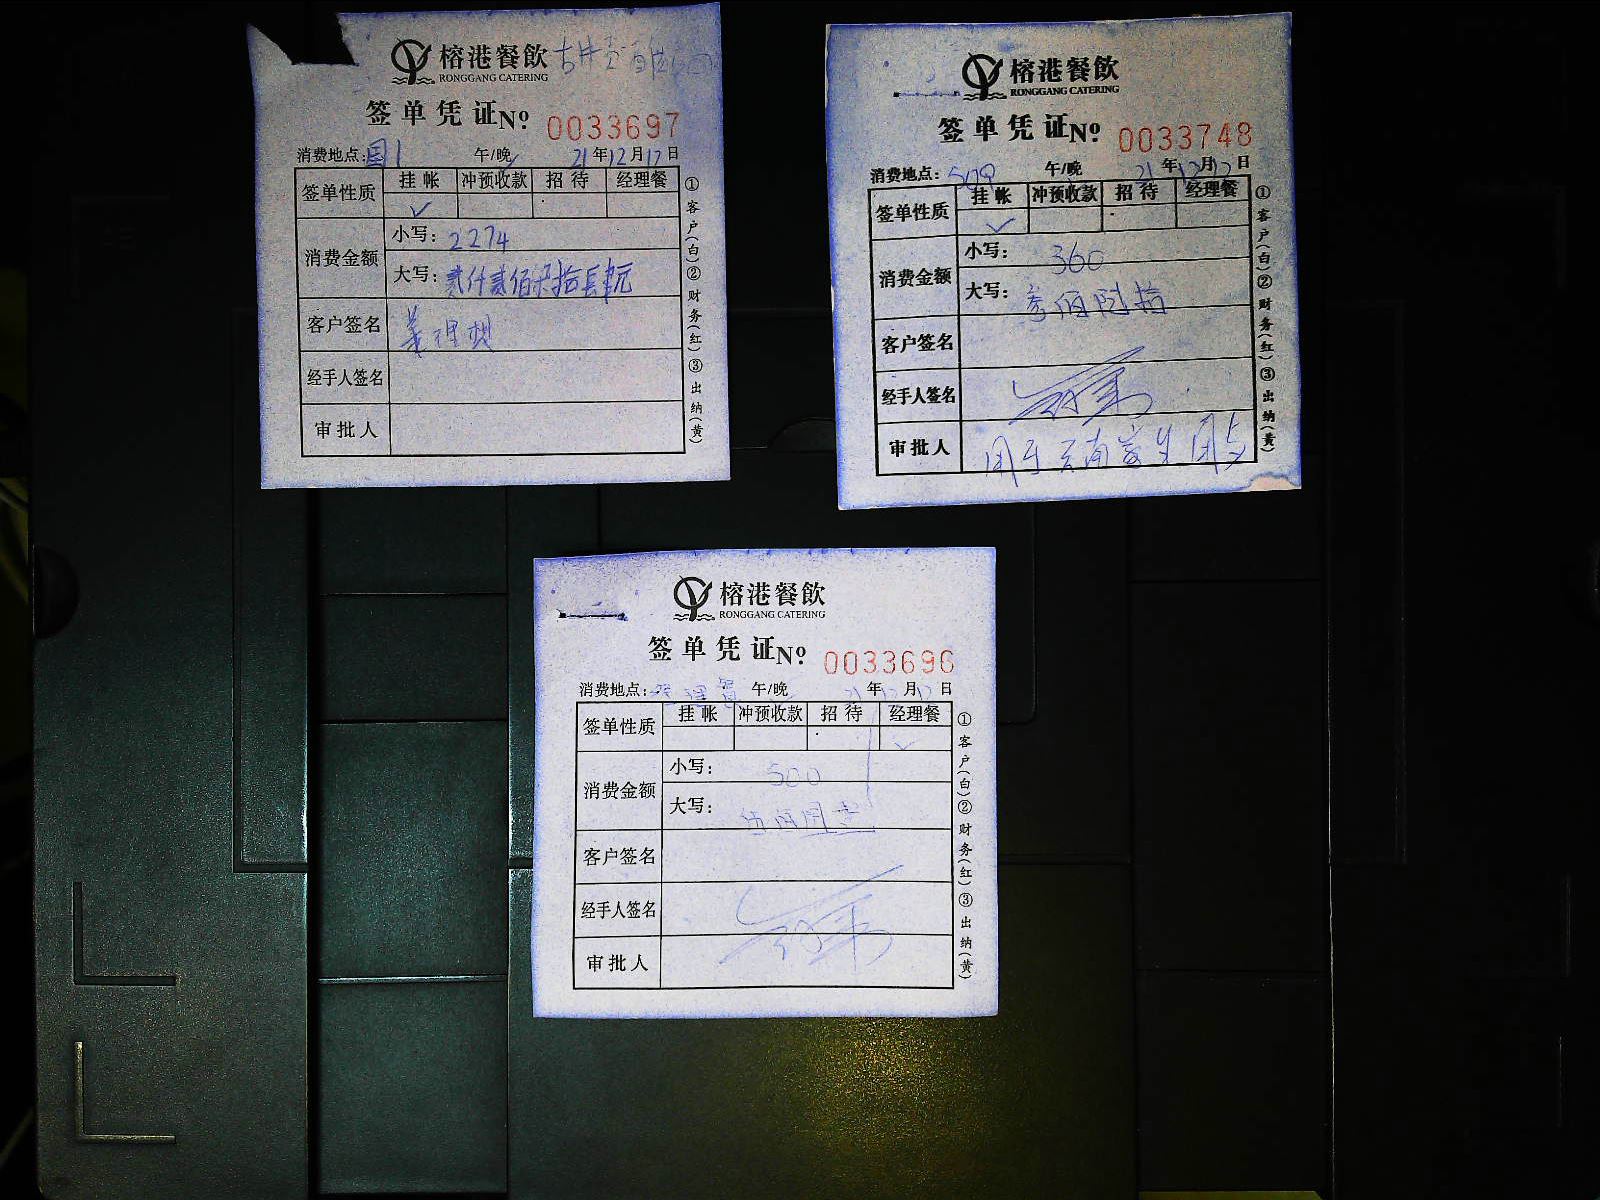 榕港餐飲
RONGGANG CATERING
签单凭证No 0033697
消费地点：国1 午/晚 21年12月17日
签单性质 挂帐 冲预收款 招待 经理餐
✓
消费金额
小写：2274
大写：贰仟贰佰柒拾肆元
客户签名 姜理想
经手人签名
审批人
①客户(白)②财务(红)③出纳(黄)
榕港餐飲
RONGGANG CATERING
签单凭证No 0033748
消费地点：509 午/晚 21年12月12日
签单性质 挂帐 冲预收款 招待 经理餐
✓
消费金额
小写：360
大写：叁佰陆拾
客户签名
经手人签名
审批人 用于云南
①客户(白)②财务(红)③出纳(黄)
榕港餐飲
RONGGANG CATERING
签单凭证No 0033696
消费地点： 午/晚 21年12月12日
签单性质 挂帐 冲预收款 招待 经理餐
✓
消费金额
小写：500
大写：伍佰圆整
客户签名
经手人签名
审批人
①客户(白)②财务(红)③出纳(黄)